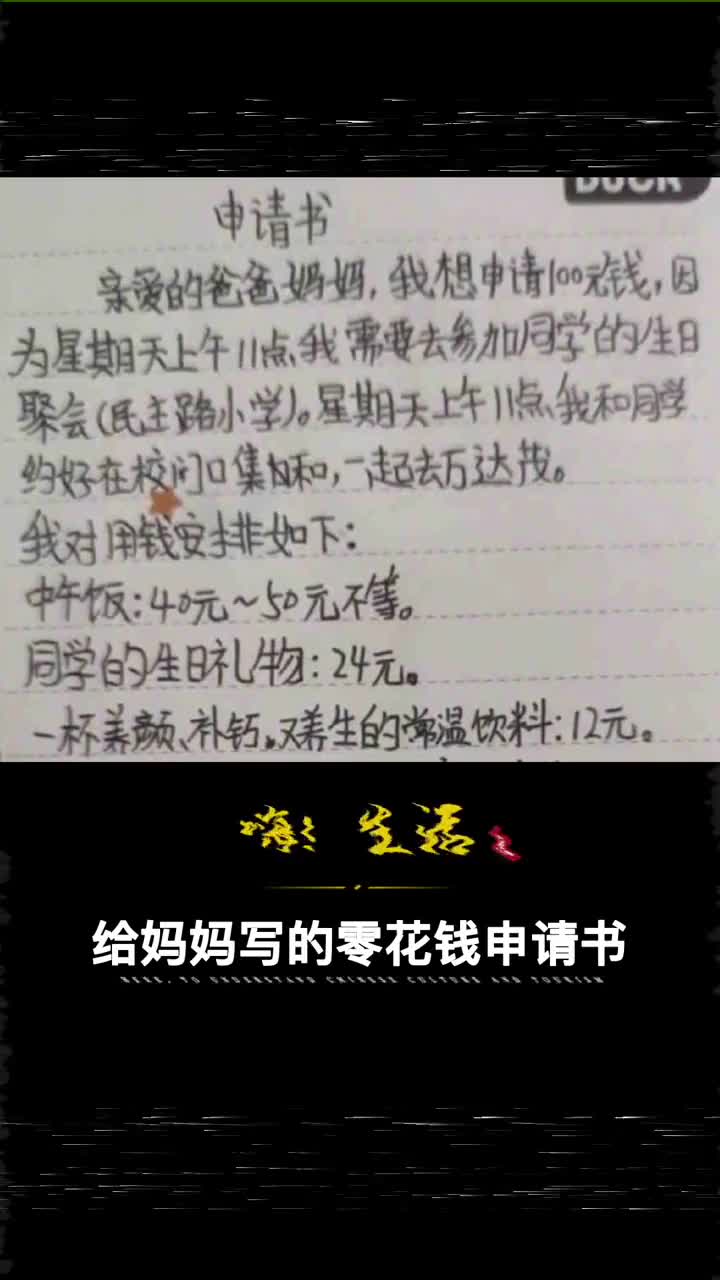 申请书
亲爱的爸爸妈妈，我想申请100元钱，因
为星期天上午11点，我需要去参加同学的生日
聚会(民主路小学)。星期天上午11点，我和同学
约好在校门口集合和，一起去万达茂。
我对用钱安排如下：
中午饭：40元~50元不等。
同学的生日礼物：24元。
一杯养颜、补钙。又养生的常温饮料：12元。
嗨！生活
给妈妈写的零花钱申请书